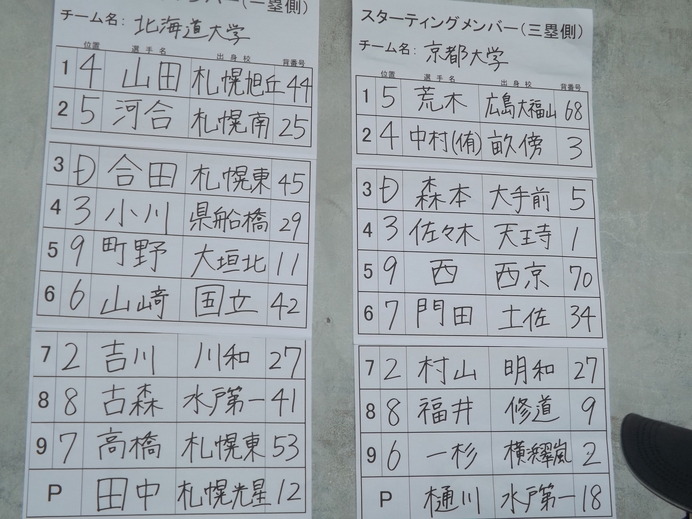 バー(一塁側)
チーム名: 北海道大学
位置 選手名 出身校 背番号
1 4 山田 札幌旭丘 44
2 5 河合 札幌南 25
3 D 合田 札幌東 45
4 3 小川 県船橋 29
5 9 町野 大垣北 11
6 6 山﨑 国立 42
7 2 吉川 川和 27
8 8 古森 水戸第一 41
9 7 高橋 札幌東 53
P 田中 札幌光星 12
スターティングメンバー(三塁側)
チーム名: 京都大学
位置 選手名 出身校 背番号
1 5 荒木 広島大福山 68
2 4 中村(侑) 畝傍 3
3 D 森本 大手前 5
4 3 佐々木 天王寺 1
5 9 西 西京 70
6 7 門田 土佐 34
7 2 村山 明和 27
8 8 福井 修道 9
9 6 一杉 横浜翠嵐 2
P 樋川 水戸第一 18